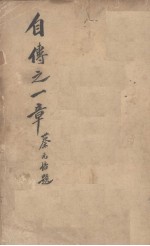 自傳之一章
蔡元培題